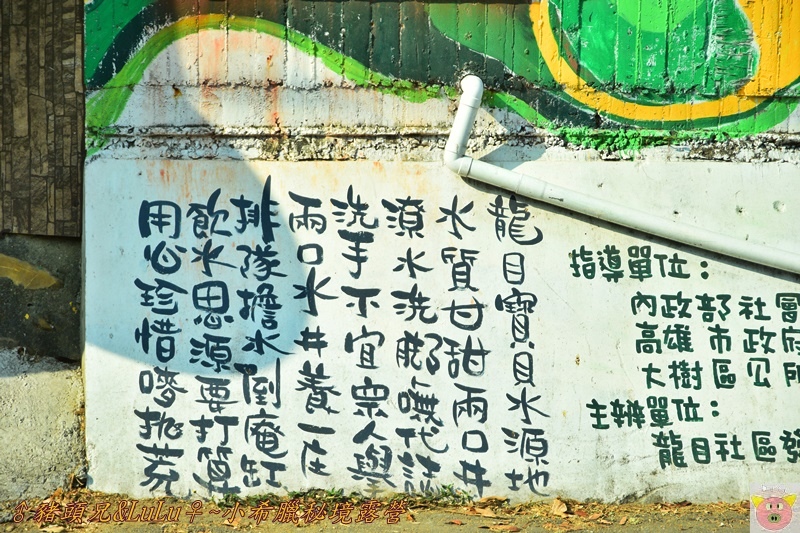 指導單位：
內政部社會
高雄市政府
大樹區公所
主辦單位：
龍目社區發
龍目寶貝水源地
水質甘甜兩口井
潦水洗腳嘸代誌
洗手不宜眾人學
兩口水井養一庄
排隊擔水倒庵缸
飲水思源要打算
用心珍惜嘜拋荒
♂豬頭兄&LuLu♀~小希臘秘境露營